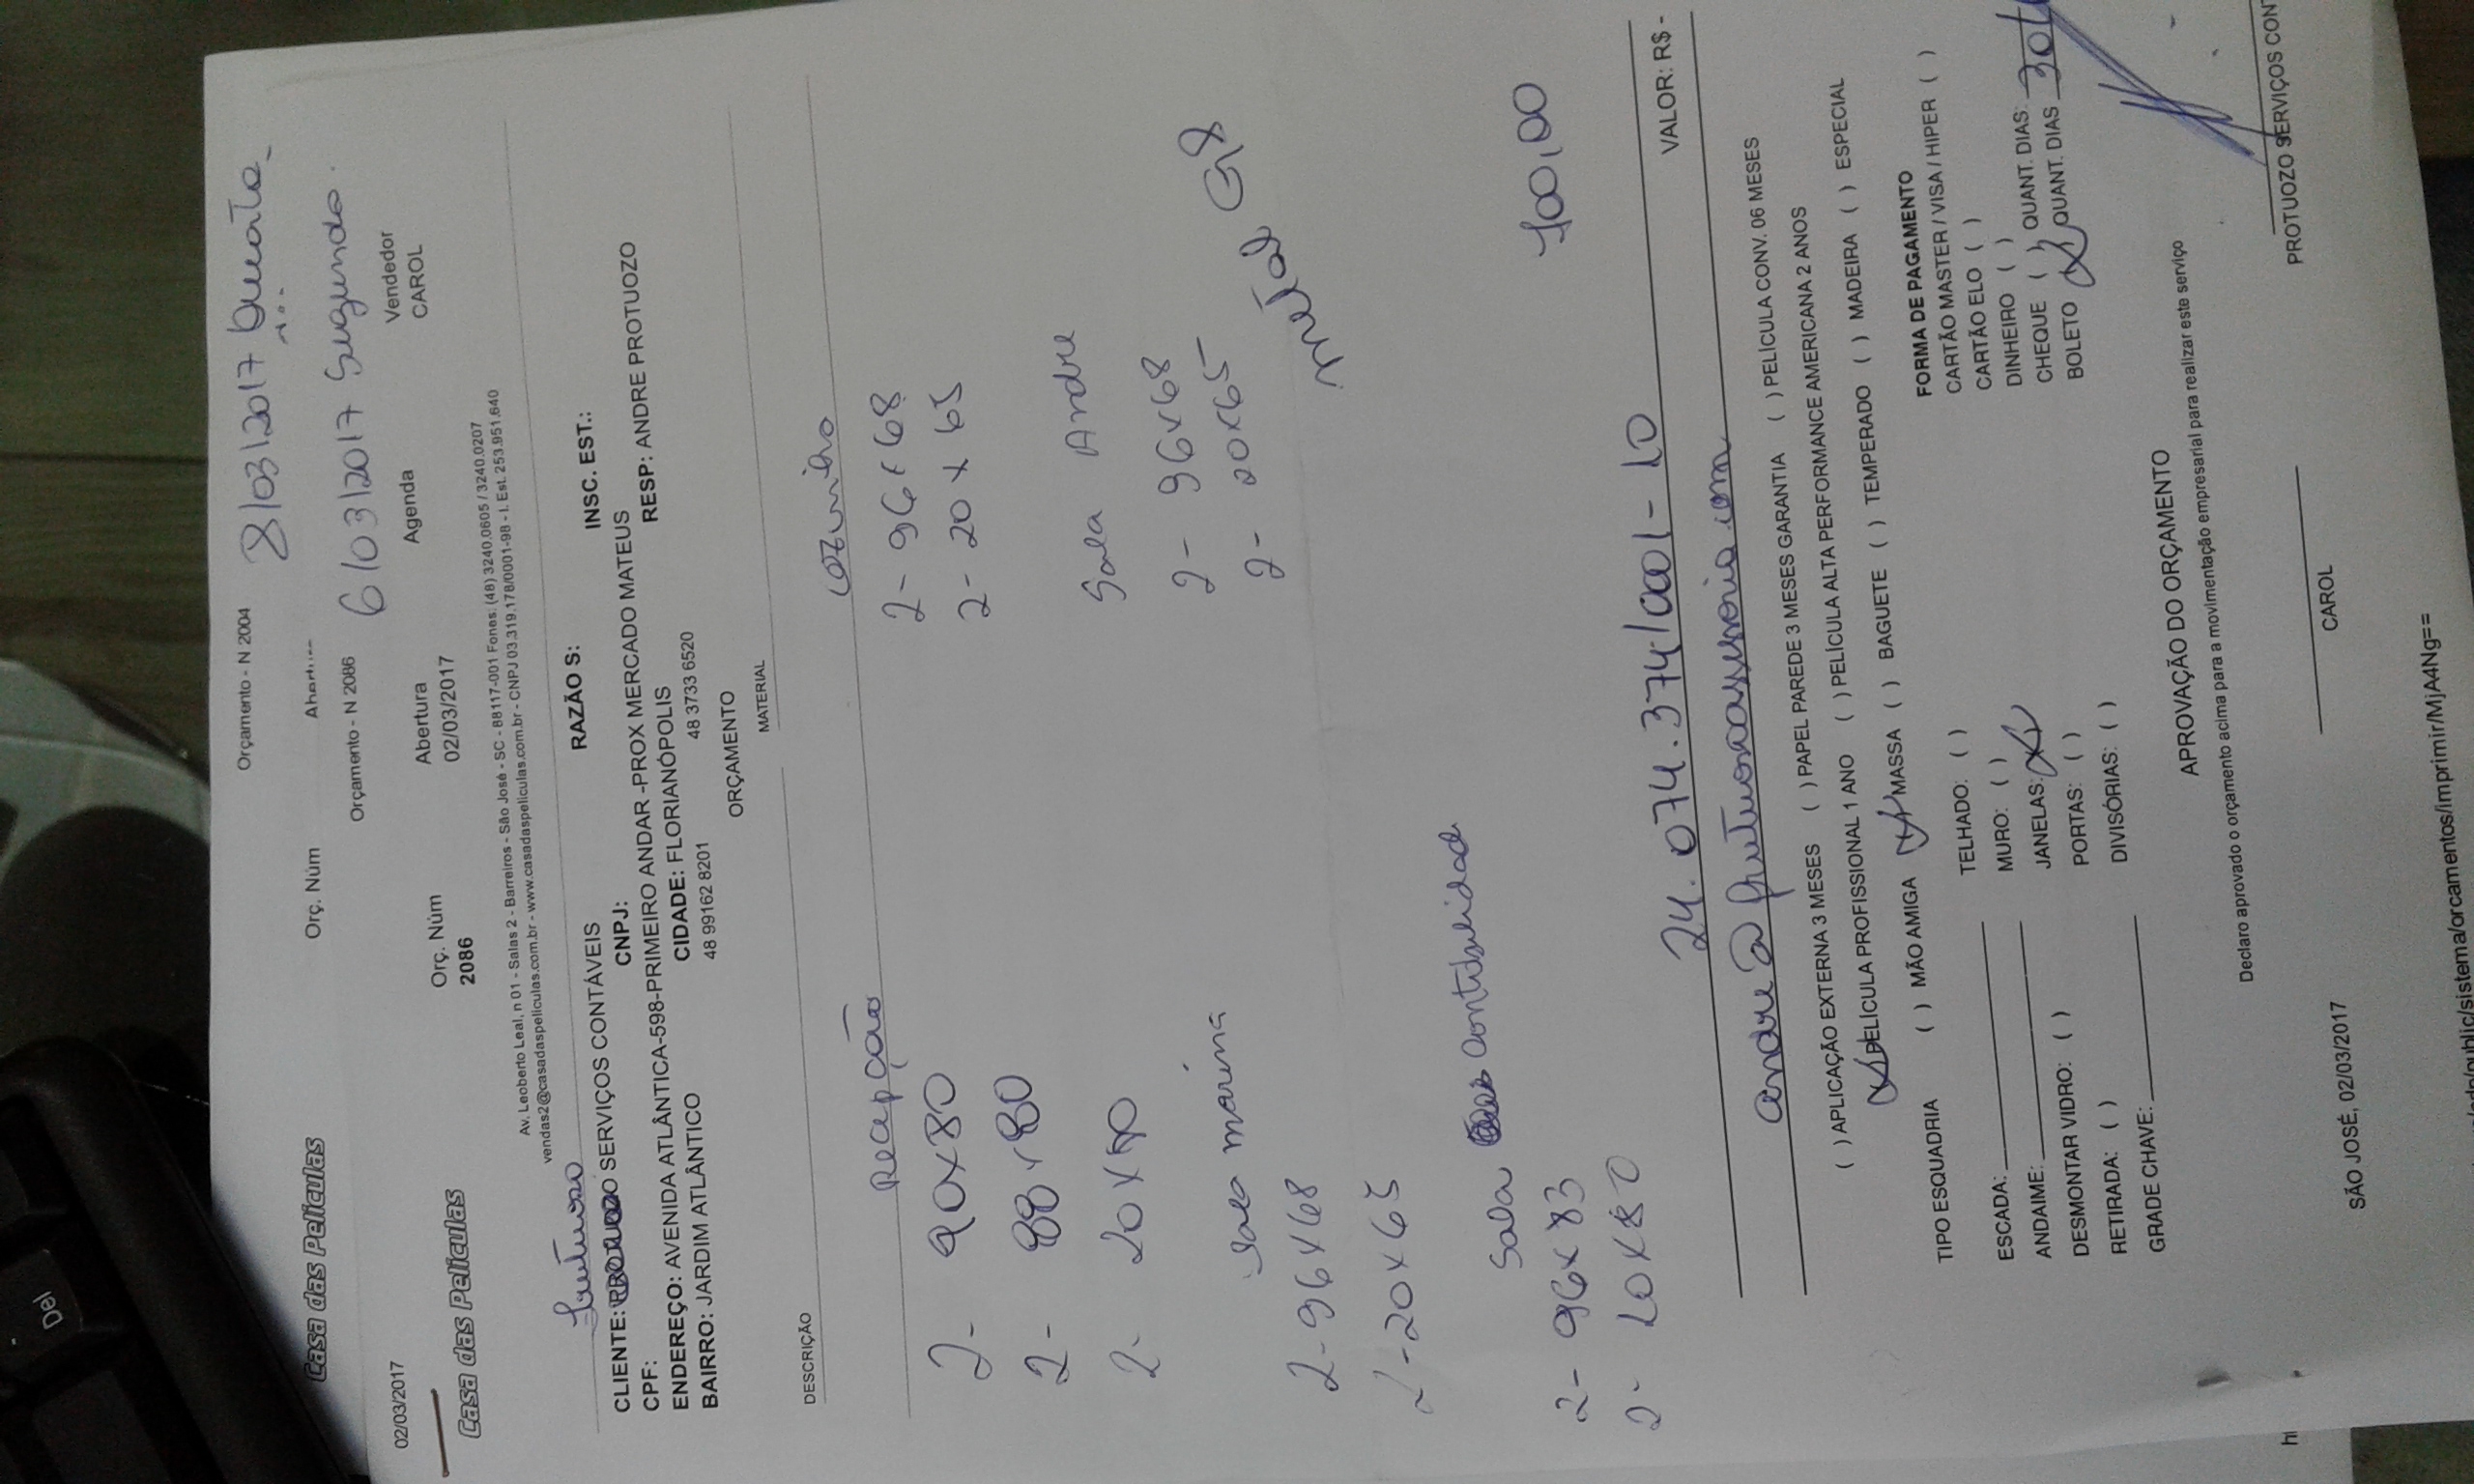 Orçamento - N 2004
8/03/2017 Quarta
Casa das Películas
Orç. Núm
Orçamento - N 2086
6/03/2017 Segunda.
02/03/2017
Casa das Películas
Orç. Núm
2086
Abertura
02/03/2017
Agenda
Vendedor
CAROL
Av. Leoberto Leal, n 01 - Salas 2 - Barreiros - São José - SC - 88117-001 Fones: (48) 3240.0605 / 3240.0207
vendas2@casadaspeliculas.com.br - www.casadaspeliculas.com.br - CNPJ 03.319.178/0001-98 - I. Est. 253.951.640
CLIENTE: SERVIÇOS CONTÁVEIS RAZÃO S:
CPF: CNPJ: INSC. EST.:
ENDEREÇO: AVENIDA ATLÂNTICA-598-PRIMEIRO ANDAR -PROX MERCADO MATEUS
BAIRRO: JARDIM ATLÂNTICO CIDADE: FLORIANÓPOLIS RESP: ANDRE PROTUOZO
48 99162 8201 48 3733 6520
ORÇAMENTO
DESCRIÇÃO MATERIAL
Recepção
2- 90x80
2- 88x80
2- 20x
Sala marina
2- 96x68
2-20x65
Sala Contabilidad
2- 96x83
2- 10x80
Cozinha
2- 96x68
2- 20x65
Sala Andre
2- 96x68
2- 20x65
metal G8
400,00
24.074.374/0001-10
VALOR: R$ -
( ) APLICAÇÃO EXTERNA 3 MESES ( ) PAPEL PAREDE 3 MESES GARANTIA ( ) PELÍCULA CONV. 06 MESES
PELÍCULA PROFISSIONAL 1 ANO ( ) PELÍCULA ALTA PERFORMANCE AMERICANA 2 ANOS
TIPO ESQUADRIA ( ) MÃO AMIGA MASSA ( ) BAGUETE ( ) TEMPERADO ( ) MADEIRA ( ) ESPECIAL
ESCADA:
ANDAIME:
DESMONTAR VIDRO: ( )
RETIRADA: ( )
GRADE CHAVE:
TELHADO: ( )
MURO: ( )
JANELAS:
PORTAS: ( )
DIVISÓRIAS: ( )
FORMA DE PAGAMENTO
CARTÃO MASTER / VISA / HIPER ( )
CARTÃO ELO ( )
DINHEIRO ( )
CHEQUE ( ) QUANT. DIAS:
BOLETO QUANT. DIAS
APROVAÇÃO DO ORÇAMENTO
Declaro aprovado o orçamento acima para a movimentação empresarial para realizar este serviço
SÃO JOSÉ, 02/03/2017
CAROL
PROTUOZO SERVIÇOS CONT
/public/sistema/orcamentos/imprimir/MjA4Ng==
Del